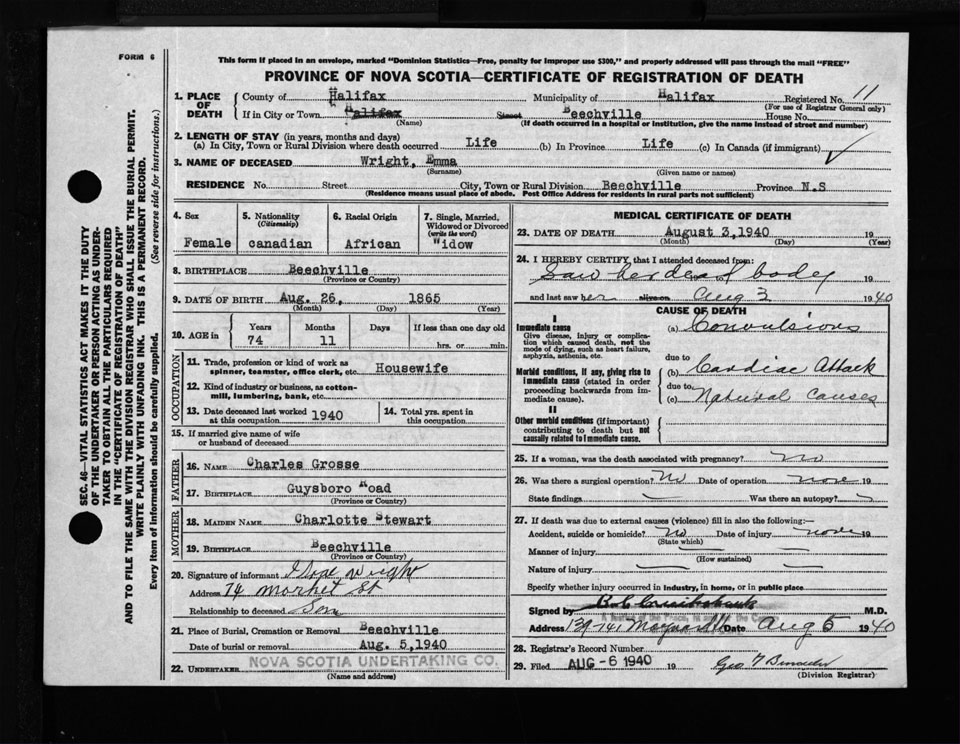 FORM 6
This form if placed in an envelope, marked "Dominion Statistics—Free, penalty for improper use $300," and properly addressed will pass through the mail "FREE"
PROVINCE OF NOVA SCOTIA—CERTIFICATE OF REGISTRATION OF DEATH
SEC. 46—VITAL STATISTICS ACT MAKES IT THE DUTY
OF THE UNDERTAKER OR PERSON ACTING AS UNDER-
TAKER TO OBTAIN ALL THE PARTICULARS REQUIRED
IN THE "CERTIFICATE OF REGISTRATION OF DEATH"
AND TO FILE THE SAME WITH THE DIVISION REGISTRAR WHO SHALL ISSUE THE BURIAL PERMIT.
WRITE PLAINLY WITH UNFADING INK. THIS IS A PERMANENT RECORD.
Every item of information should be carefully supplied. (See reverse side for instructions.)
1. PLACE OF DEATH
County of Halifax Municipality of Halifax Registered No. 11
(For use of Registrar General only)
If in City or Town Halifax Street Beechville House No.
(Name) (If death occurred in a hospital or institution, give the name instead of street and number)
2. LENGTH OF STAY (in years, months and days)
(a) In City, Town or Rural Division where death occurred Life (b) In Province Life (c) In Canada (if immigrant)
3. NAME OF DECEASED Wright, Emma
(Surname) (Given name or names)
RESIDENCE No. Street City, Town or Rural Division Beechville Province N.S
(Residence means usual place of abode. Post Office Address for residents in rural parts not sufficient)
4. Sex
Female
5. Nationality
(Citizenship)
canadian
6. Racial Origin
African
7. Single, Married,
Widowed or Divorced
(write the word)
"idow
8. BIRTHPLACE Beechville
(Province or Country)
9. DATE OF BIRTH Aug. 26, 1865
(Month) (Day) (Year)
10. AGE in
Years Months Days If less than one day old
74 11 hrs. or min.
OCCUPATION
11. Trade, profession or kind of work as
spinner, teamster, office clerk, etc. Housewife
12. Kind of industry or business, as cotton-
mill, lumbering, bank, etc.
13. Date deceased last worked
at this occupation 1940
14. Total yrs. spent in
this occupation
15. If married give name of wife
or husband of deceased
FATHER
16. NAME Charles Grosse
17. BIRTHPLACE Guysboro Road
(Province or Country)
MOTHER
18. MAIDEN NAME Charlotte Stewart
19. BIRTHPLACE Beechville
(Province or Country)
20. Signature of informant Wright
Address 74 Market St
Relationship to deceased Son
21. Place of Burial, Cremation or Removal Beechville
Date of burial or removal Aug. 5, 1940
22. UNDERTAKER NOVA SCOTIA UNDERTAKING CO.
(Name and address)
MEDICAL CERTIFICATE OF DEATH
23. DATE OF DEATH August 3, 1940 19
(Month) (Day) (Year)
24. I HEREBY CERTIFY, that I attended deceased from:
Saw her dead body 19
and last saw her alive on Aug 3 1940
CAUSE OF DEATH
I
Immediate cause
Give disease, injury or complica-
tion which caused death, not the
mode of dying, such as heart failure,
asphyxia, asthenia, etc.
(a) Convulsions
due to
Morbid conditions, if any, giving rise to
immediate cause (stated in order
proceeding backwards from im-
mediate cause).
(b) Cardiac Attack
due to
(c) Natural Causes
II
Other morbid conditions (if important)
contributing to death but not
causally related to immediate cause.
25. If a woman, was the death associated with pregnancy? No
26. Was there a surgical operation? No Date of operation none 19
State findings — Was there an autopsy? —
27. If death was due to external causes (violence) fill in also the following:—
Accident, suicide or homicide? No Date of injury none 19
(State which)
Manner of injury —
(How sustained)
Nature of injury —
Specify whether injury occurred in industry, in home, or in public place
Signed by M.D.
Address Date Aug 5 1940
28. Registrar's Record Number
29. Filed AUG -6 1940 19
(Division Registrar)